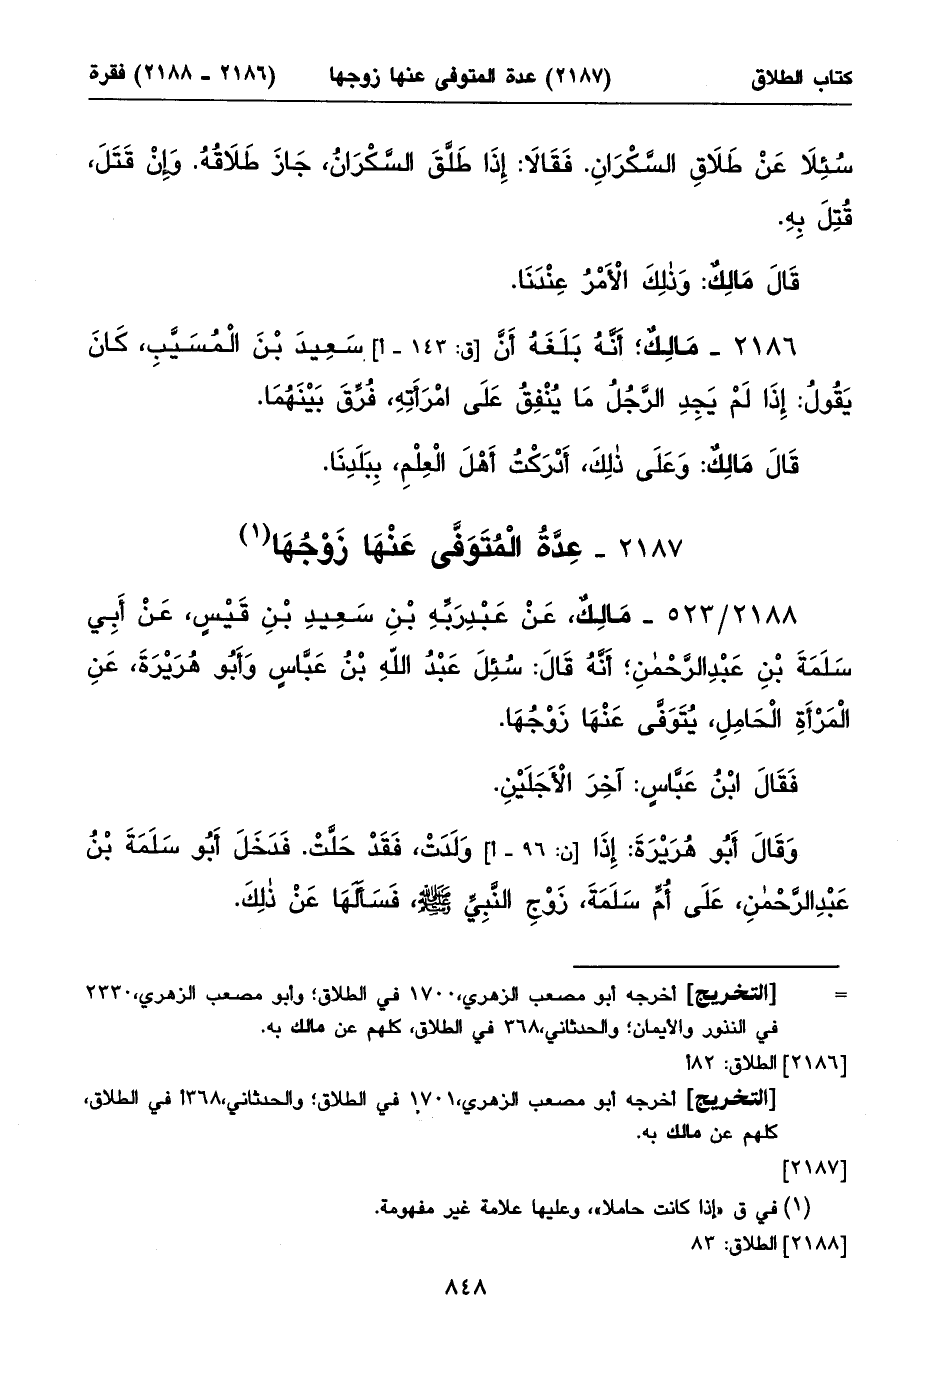 كتاب الطلاق (٢١٨٧) عدة المتوفى عنها زوجها (٢١٨٦ - ٢١٨٨) فقرة
سُئِلَا عَنْ طَلَاقِ السَّكْرَانِ. فَقَالَا: إِذَا طَلَّقَ السَّكْرَانُ، جَازَ طَلَاقُهُ. وَإِنْ قَتَلَ،
قُتِلَ بِهِ.
قَالَ مَالِكٌ: وَذٰلِكَ الْأَمْرُ عِنْدَنَا.
٢١٨٦ - مَالِكٌ؛ أَنَّهُ بَلَغَهُ أَنَّ [ق: ١٤٣ - أ] سَعِيدَ بْنَ الْمُسَيَّبِ، كَانَ
يَقُولُ: إِذَا لَمْ يَجِدِ الرَّجُلُ مَا يُنْفِقُ عَلَى امْرَأَتِهِ، فُرِّقَ بَيْنَهُمَا.
قَالَ مَالِكٌ: وَعَلَى ذٰلِكَ، أَدْرَكْتُ أَهْلَ الْعِلْمِ، بِبَلَدِنَا.
٢١٨٧ - عِدَّةُ الْمُتَوَفَّى عَنْهَا زَوْجُهَا(١)
٥٢٣/٢١٨٨ - مَالِكٌ، عَنْ عَبْدِرَبِّهِ بْنِ سَعِيدِ بْنِ قَيْسٍ، عَنْ أَبِي
سَلَمَةَ بْنِ عَبْدِالرَّحْمٰنِ؛ أَنَّهُ قَالَ: سُئِلَ عَبْدُ اللهِ بْنُ عَبَّاسٍ وَأَبُو هُرَيْرَةَ، عَنِ
الْمَرْأَةِ الْحَامِلِ، يُتَوَفَّى عَنْهَا زَوْجُهَا.
فَقَالَ ابْنُ عَبَّاسٍ: آخِرَ الْأَجَلَيْنِ.
وَقَالَ أَبُو هُرَيْرَةَ: إِذَا [ن: ٩٦ - أ] وَلَدَتْ، فَقَدْ حَلَّتْ. فَدَخَلَ أَبُو سَلَمَةَ بْنُ
عَبْدِالرَّحْمٰنِ، عَلَى أُمِّ سَلَمَةَ، زَوْجِ النَّبِيِّ ﷺ، فَسَأَلَهَا عَنْ ذٰلِكَ.
= [التخريج] أخرجه أبو مصعب الزهري،١٧٠٠ في الطلاق؛ وأبو مصعب الزهري،٢٢٣٠
في النذور والأيمان؛ والحدثاني،٣٦٨ في الطلاق، كلهم عن مالك به.
[٢١٨٦] الطلاق: ٨٢أ
[التخريج] أخرجه أبو مصعب الزهري،١٧٠١ في الطلاق؛ والحدثاني،٣٦٨أ في الطلاق،
كلهم عن مالك به.
[٢١٨٧]
(١) في ق «إذا كانت حاملا»، وعليها علامة غير مفهومة.
[٢١٨٨] الطلاق: ٨٣
٨٤٨